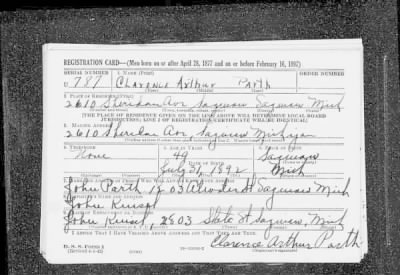 REGISTRATION CARD—(Men born on or after April 28, 1877 and on or before February 16, 1897)
SERIAL NUMBER 1. NAME (Print) ORDER NUMBER
U 787 Clarence Arthur Parth
2. PLACE OF RESIDENCE (Print)
2610 Sheridan Ave Saginaw Saginaw Mich
[THE PLACE OF RESIDENCE GIVEN ON THE LINE ABOVE WILL DETERMINE LOCAL BOARD
JURISDICTION; LINE 2 OF REGISTRATION CERTIFICATE WILL BE IDENTICAL]
3. MAILING ADDRESS
2610 Sheridan Ave Saginaw Michigan
4. TELEPHONE 5. AGE IN YEARS 6. PLACE OF BIRTH
None 49 Saginaw
DATE OF BIRTH
July 31, 1892 Mich
John Parth 1203 Atwater St Saginaw Mich
John
John 2803 State St, Saginaw, Mich
I AFFIRM THAT I HAVE VERIFIED ABOVE ANSWERS AND THAT THEY ARE TRUE.
D. S. S. Form 1
(Revised 4-1-42)
Clarence Arthur Parth